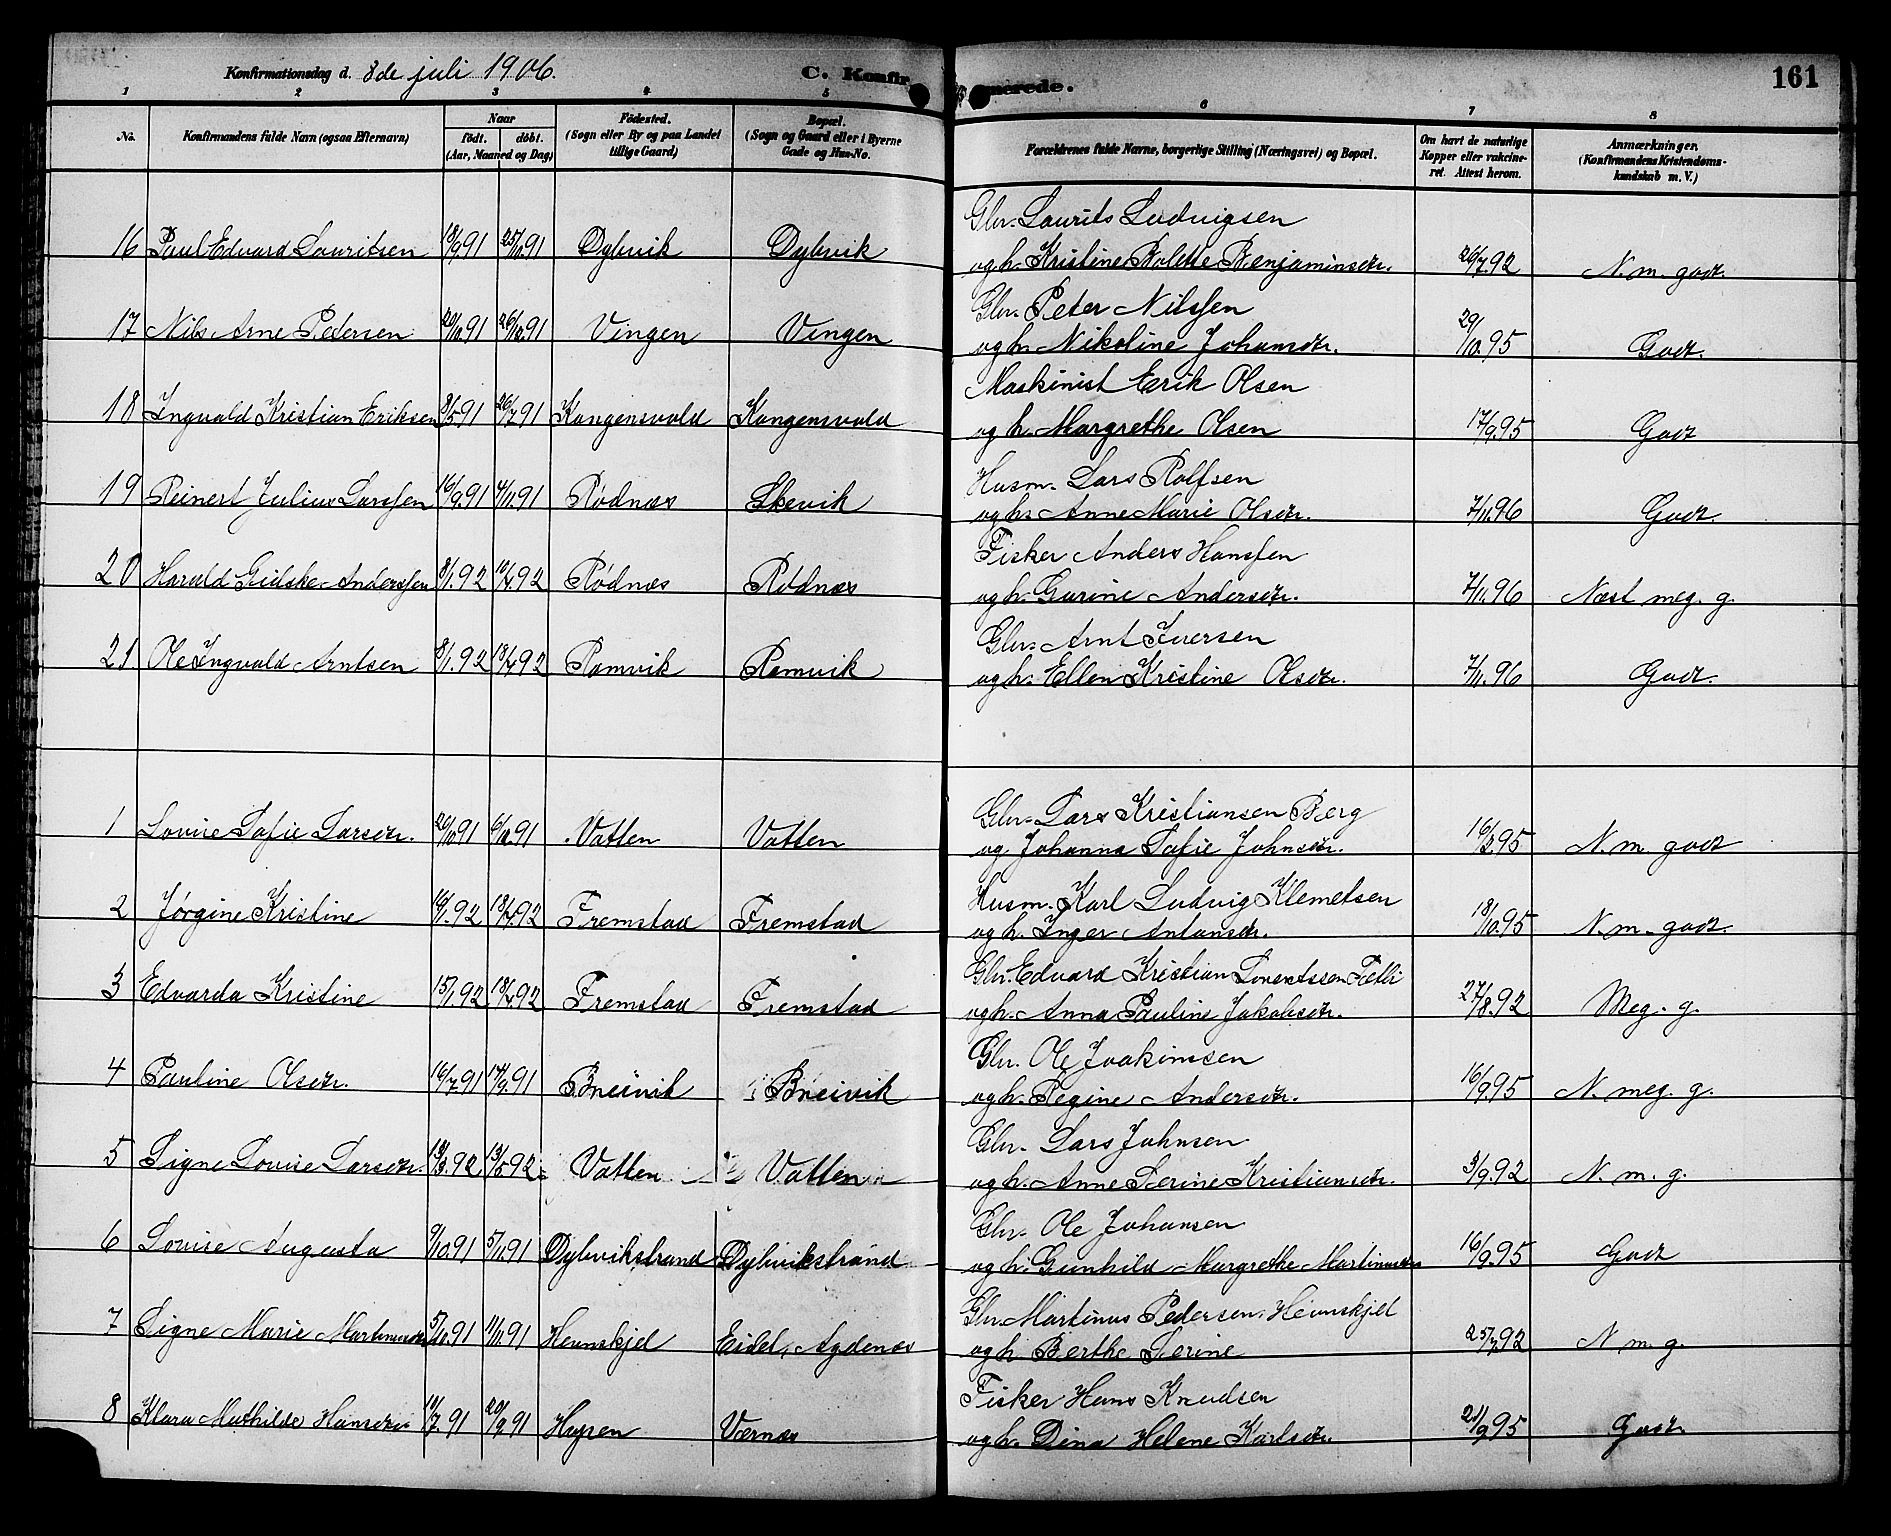 Konfirmationsdag d. 8de juli 1906.
C. Konfirmerede.
161
1 2 3 4 5 6 7 8
No. Konfirmandens fulde Navn (ogsaa Efternavn) Naar födt. döbt. (Aar, Maaned og Dag) Födested. (Sogn eller By og paa Landet tillige Gaard) Bopæl. (Sogn og Gaard eller i Byerne Gade og Hus-No. Forældrenes fulde Navne, borgerlige Stilling (Næringsvei) og Bopæl. Om havt de naturlige Kopper eller vakcineret. Attest herom. Anmærkninger. (Konfirmandens Kristendomskundskab m. V.)
Gbr. Laurits Ludvigsen
16 Paul Edvard Lauritsen 18/9 91 25/10 91 Dybvik Dybvik og h. Kristine Bolette Benjaminsdtr. 26/7 92 N. m. godt.
Gbr. Peter Nilssen
17 Nils Arne Pedersen 20/10 91 26/12 91 Vingen Vingen og h. Nikoline Johansdtr. 29/10 95 Godt.
Maskinist Erik Olsen
18 Ingvald Kristian Eriksen 8/5 91 26/7 91 Kongensvold Kongensvold og h. Margrethe Olsen 17/9 95 Godt
Husm. Lars Rolfsen
19 Reinert Julius Larssen 16/9 91 4/11 91 Rødnæs Skevik og h. Anne Marie Olsdtr. 7/11 96 Godt.
Fisker Anders Hanssen
20 Harald Gidske Anderssen 8/1 92 10/4 92 Rødnæs Rødnæs og h. Gurine Andersdtr. 7/11 96 Næst meg. g.
Gbr. Arnt Iversen
21 Ole Ingvald Arntsen 8/1 92 18/4 92 Ramvik Ramvik og h. Ellen Kristine Olsdtr. 7/11 96 Godt.
Gbr. Lars Kristiansen Berg
1 Lovise Sofie Larsdtr. 26/10 91 6/12 91 Vatten Vatten og Johanna Sofie Johnsdtr. 16/3 95 N. m. godt
Husm. Karl Ludvig Klemetsen
2 Jørgine Kristine 16/1 92 18/4 92 Fremstad Fremstad og h. Inger Antonsdtr. 18/10 95 N. m. godt.
Gbr. Edvard Kristian Lorentssen
3 Edvarda Kristine 15/1 92 18/4 92 Fremstad Fremstad og h. Anna Pauline Jakobsdtr. 27/8 92 Meg. g.
Gbr. Ole Joakimsen
4 Pauline Olsdtr. 16/7 91 17/9 91 Breivik Breivik og h. Regine Andersdtr. 16/9 95 N. meg. g.
Gbr. Lars Johnsen
5 Signe Lovise Larsdtr. 13/3 92 13/5 92 Vatten Vatten og h. Anne Serine Kristiansdtr. 3/9 92 N. m. g.
Gbr. Ole Johansen
6 Lovise Augusta 9/10 91 5/11 91 Dybvikstrand Dybvikstrand og h. Gunhild Margrethe Martinusdtr 16/9 95 Godt
Gbr. Martinus Pedersen Hevnskjel
7 Signe Marie Martinusdtr 5/10 91 11/11 91 Hevnskjel Eidet, Agdenæs og h. Berthe Serine 25/7 92 N. m. g.
Fisker Hans Knudsen
8 Klara Mathilde Hansdtr 11/7 91 20/9 91 Hysen Værnes og h. Dina Helene Karlsdtr. 21/9 95 godt.